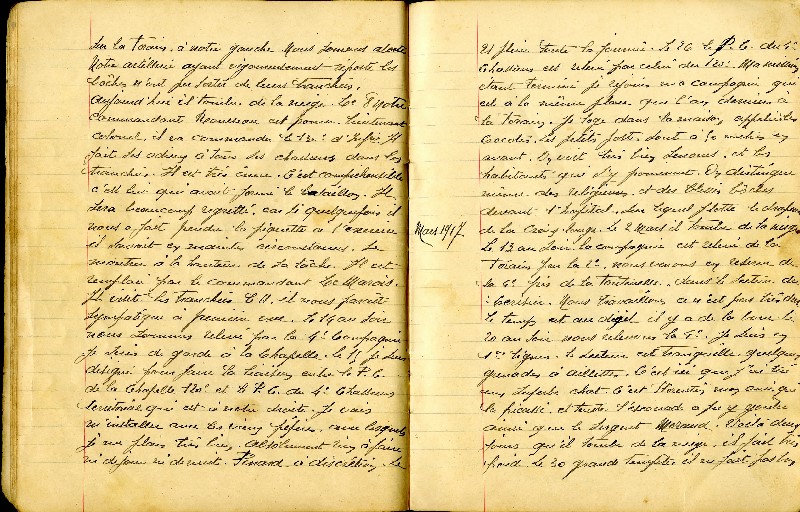 de la Forain, à notre gauche. Nous sommes alerté
Notre artillerie ayant vigoureusement riposté les
boches n'ont pu sortir de leurs tranchées.
Aujourd'hui il tombe de la neige. Le 8 Notre
commandant est promu lieutenant
colonel, il va commander le 120e d'Infie. Il
fait ses adieux à tous ses chasseurs dans les
tranchées. Il est très ému. C'est compréhensible
c'est lui qui avait formé le bataillon. Il
sera beaucoup regretté, car si quelquefois il
nous a fait prendre la piquette à l'exercice
il savait en maintes circonstances se
montrer à la hauteur de sa tâche. Il est
remplacé par le commandant Le Marais.
Il visite les tranchées le 11. il nous paraît
sympatique à première vue. Le 14 au soir
nous sommes relevé par la 4e Compagnie
Je suis de garde à la Chapelle. Le 17 je suis
désigné pour faire la liaison entre le P.C.
de la Chapelle 120e et le P.C. du 4e Chasseurs
territoriale qui est à notre droite. Je vais
m'installer avec les vieux pépères, avec lesquels
je me plais très bien. Absolument rien à faire
ni de jour ni de nuit. Pinard à discrétion. Le
21 pluie toute la journée. Le 26 le P.C. du 4e
Chasseurs est relevé par celui du 120e. Ma mission
étant terminé je rejoins ma compagnie qui
est à la même place que l'an dernier à
la Forain. Je loge dans la maison appelée les
cocotes. Les petits postes sont à 50 mètres en
avant. On voit très bien Senones, et les
habitants qui s'y promènent. On distingue
même des religieuses, et des blessés boches
devant l'hôpital, sur lequel flotte le drapeau
Mars 1917
de la Croix Rouge. Le 2 Mars il tombe de la neige
le 13 au soir la compagnie est relevé de la
Forain par la 2e, nous venons en réserve de
la 6e près de la Fontenelle, dans le secteur de
Nous travaillons ce n'est pas très dur
le temps est au dégel il y a de la boue. Le
20 au soir nous relevons la 4e. Je suis en
1ère lignes. Le secteur est tranquille quelques
grenades à ailettes. C'est ici que j'ai tué
un superbe chat. C'est mon ami qui
le fricassé, et toute l'escouade a pu y goûter
ainsi que le sergent Moraud. Voilà deux
jours qu'il tombe de la neige, il fait très
froid. Le 30 grande tempête il ne fait pas bon